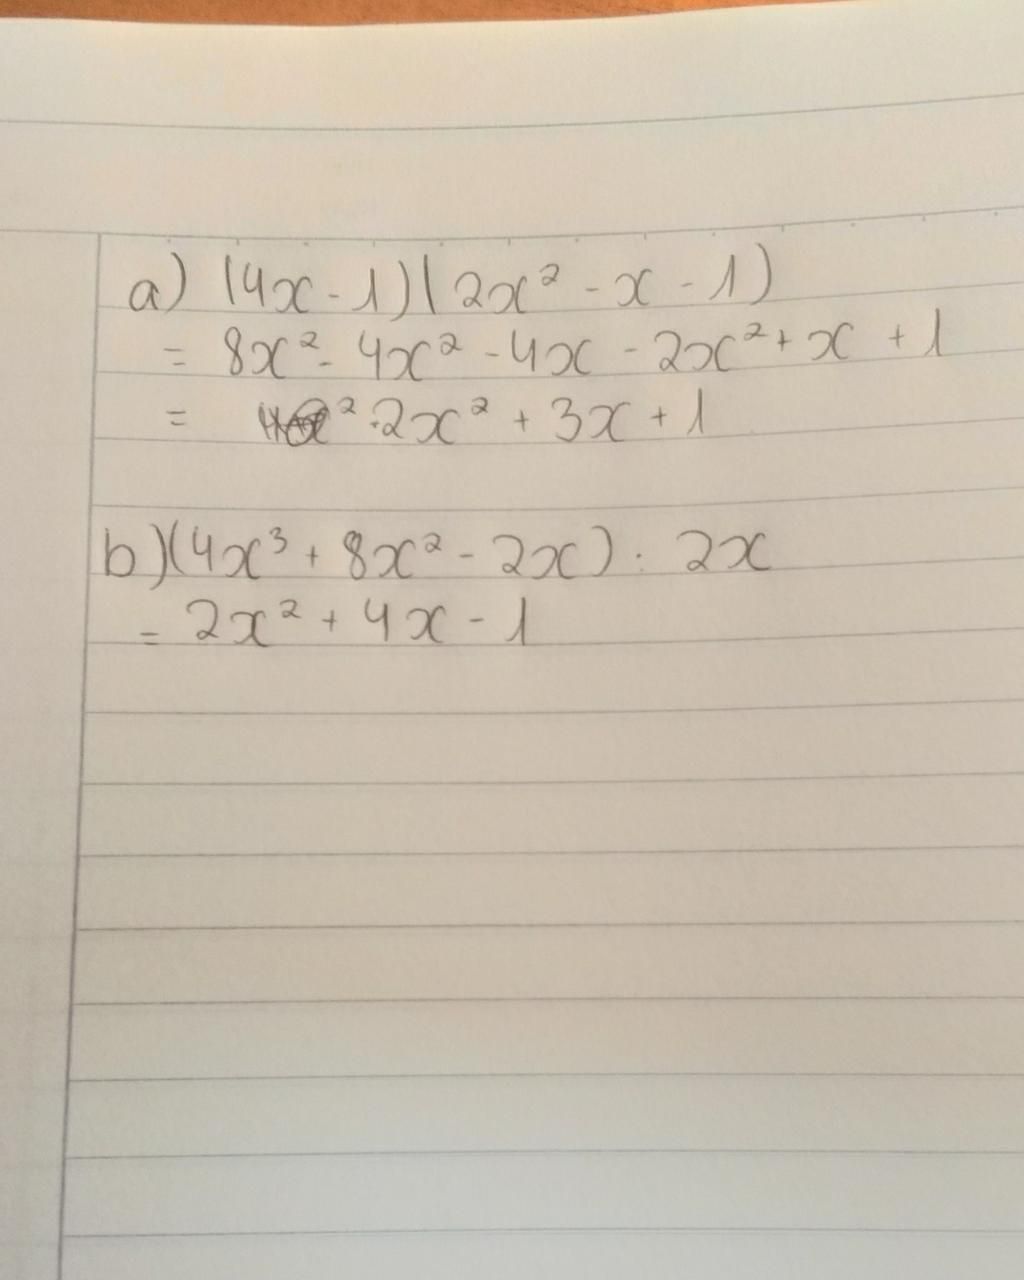 a) (4x - 1)(2x² - x - 1)
= 8x² - 4x² - 4x - 2x² + x + 1
= ² - 2x² + 3x + 1
b) (4x³ + 8x² - 2x) : 2x
= 2x² + 4x - 1